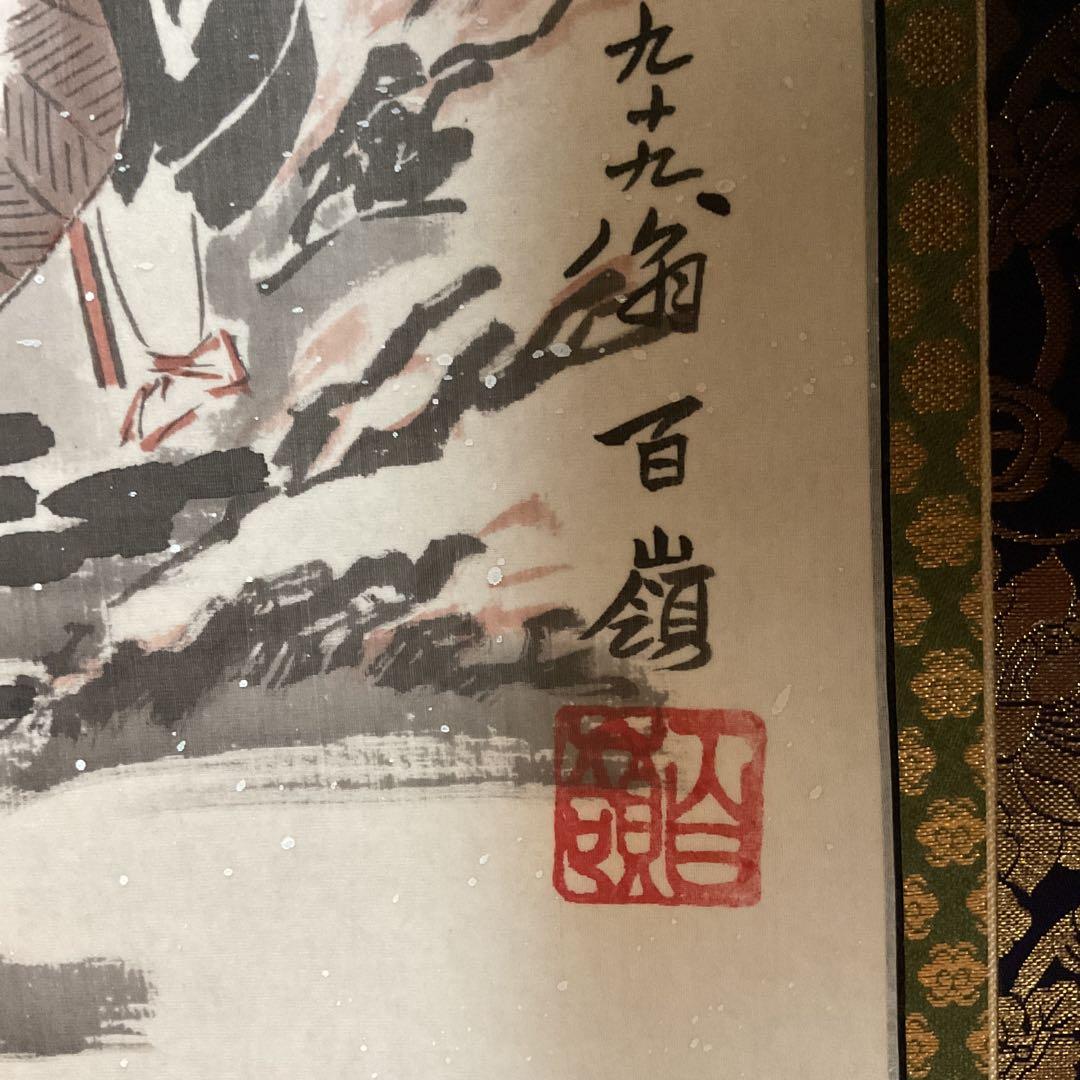 九十九翁 百嶺